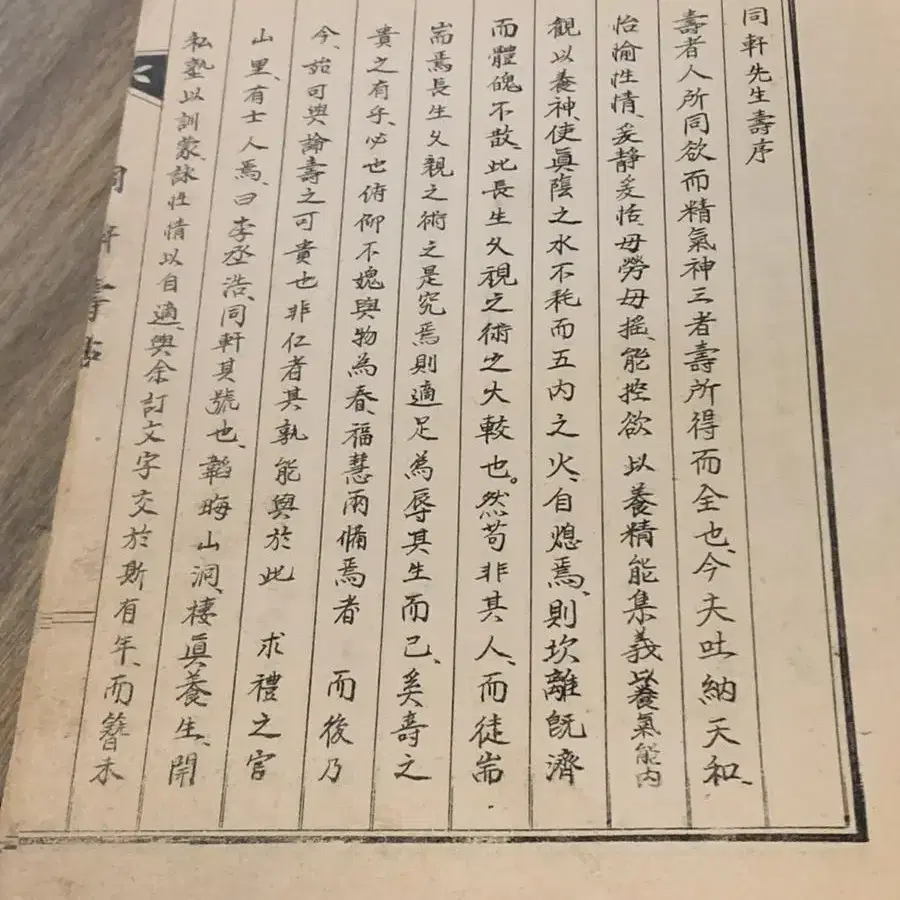 同軒先生壽序
壽者人所同欲而精氣神三者壽所得而全也、今夫吐納天和、
怡愉性情、爰靜爰恬、毋勞毋搖、能控欲以養精能集義以養氣能內
觀以養神、使眞陰之水不耗而五內之火、自熄焉、則坎離旣濟
而體魄不散、此長生久視之術之大較也。然苟非其人、而徒耑
耑焉長生久視之術之是究焉則適足為辱其生而已、奚壽之
貴之有乎、必也俯仰不愧與物為春、福慧兩備焉者 而後乃
今、始可與論壽之可貴也非仁者其孰能與於此 求禮之官
山里、有士人焉、曰李丞浩、同軒其號也、韜晦山洞、棲眞養生、開
私塾以訓蒙、詠性情以自適、與余訂文字交於斯有年、而簪未
同軒壽